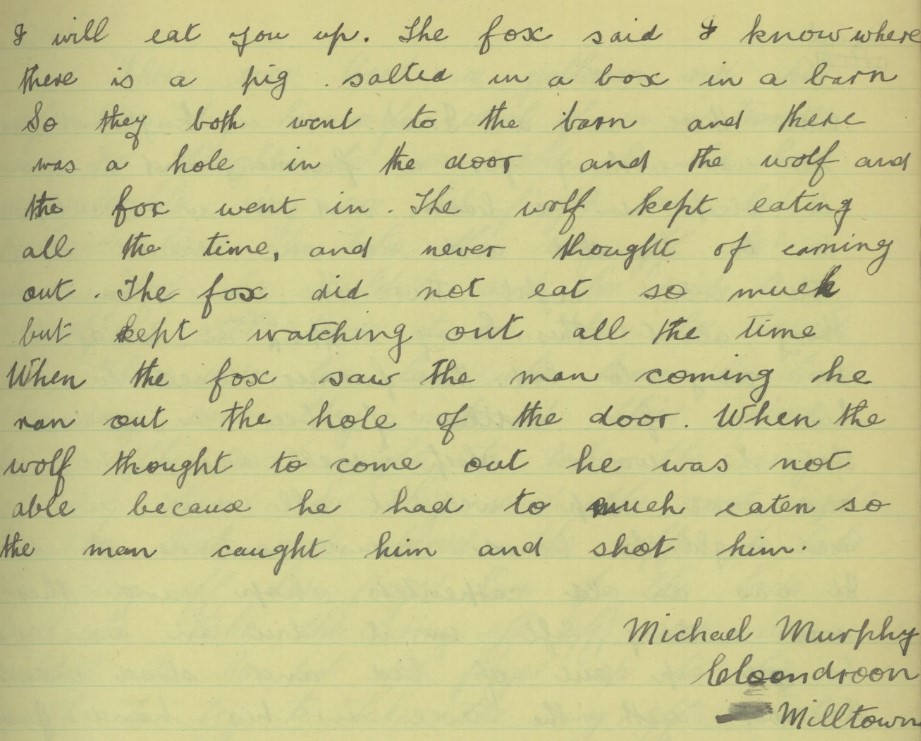 I will eat you up. The fox said I know where
there is a pig salted in a box in a barn
So they both went to the barn and there
was a hole in the door and the wolf and
the fox went in. The wolf kept eating
all the time, and never thought of coming
out. The fox did not eat so much
but kept watching out all the time
When the fox saw the man coming he
ran out the hole of the door. When the
wolf thought to come out he was not
able because he had to much eaten so
the man caught him and shot him.
Michael Murphy
Cloondroon
Milltown